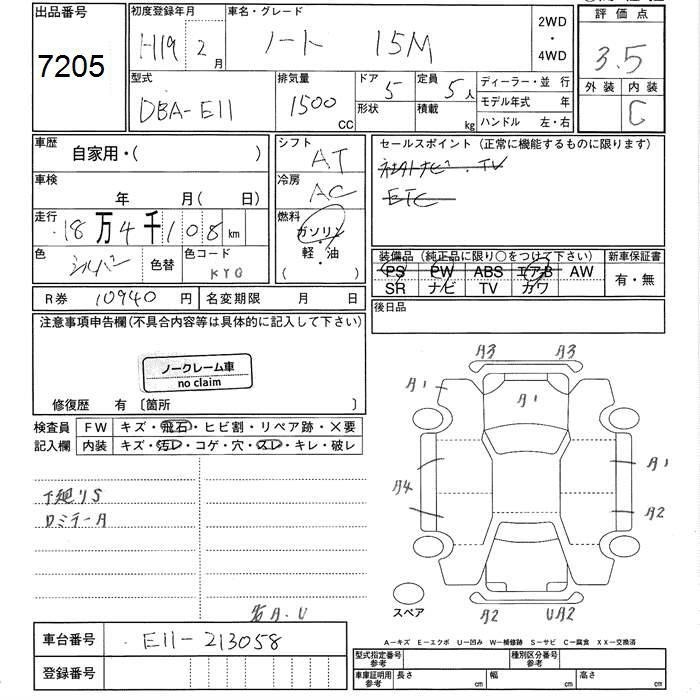 出品番号
7205
初度登録年月
H19 2月
車名・グレード
ノート 15M
2WD
・
4WD
評価点
3.5
外装 内装
C
型式
DBA-E11
排気量
1500 CC
ドア 5
形状
定員 5人
積載 kg
ディーラー・並 行
モデル年式 年
ハンドル 左・右
車歴
自家用・( )
車検
年 月( 日)
走行
18万4千108km
色
シルバー
色替
色コード
KY0
シフト
AT
冷房
AC
燃料
ガソリン
・
軽・油
( )
セールスポイント(正常に機能するものに限ります)
社外ナビ・TV
ETC
装備品(純正品に限り○をつけて下さい)
PS PW ABS エアB AW
SR ナビ TV カワ
新車保証書
有・無
R券 10940 円
名変期限 月 日
後日品
注意事項申告欄(不具合内容等は具体的に記入して下さい)
ノークレーム車
no claim
修復歴 有 〔箇所 〕
検査員
記入欄
FW キズ・飛石・ヒビ割・リペア跡・×要
内装 キズ・汚レ・コゲ・穴・スレ・キレ・破レ
下廻りS
ロミラーA
各A.U
A3 A3
A1
A1
A4
A1
A2
A2 UA2
スペア
A－キズ E－エクボ U－凹み W－補修跡 S－サビ C－腐食 XX－交換済
車台番号 E11-213058
登録番号
型式指定番号
参考
種別区分番号
参考
車庫証明用
参考
長さ cm 幅 cm 高さ cm